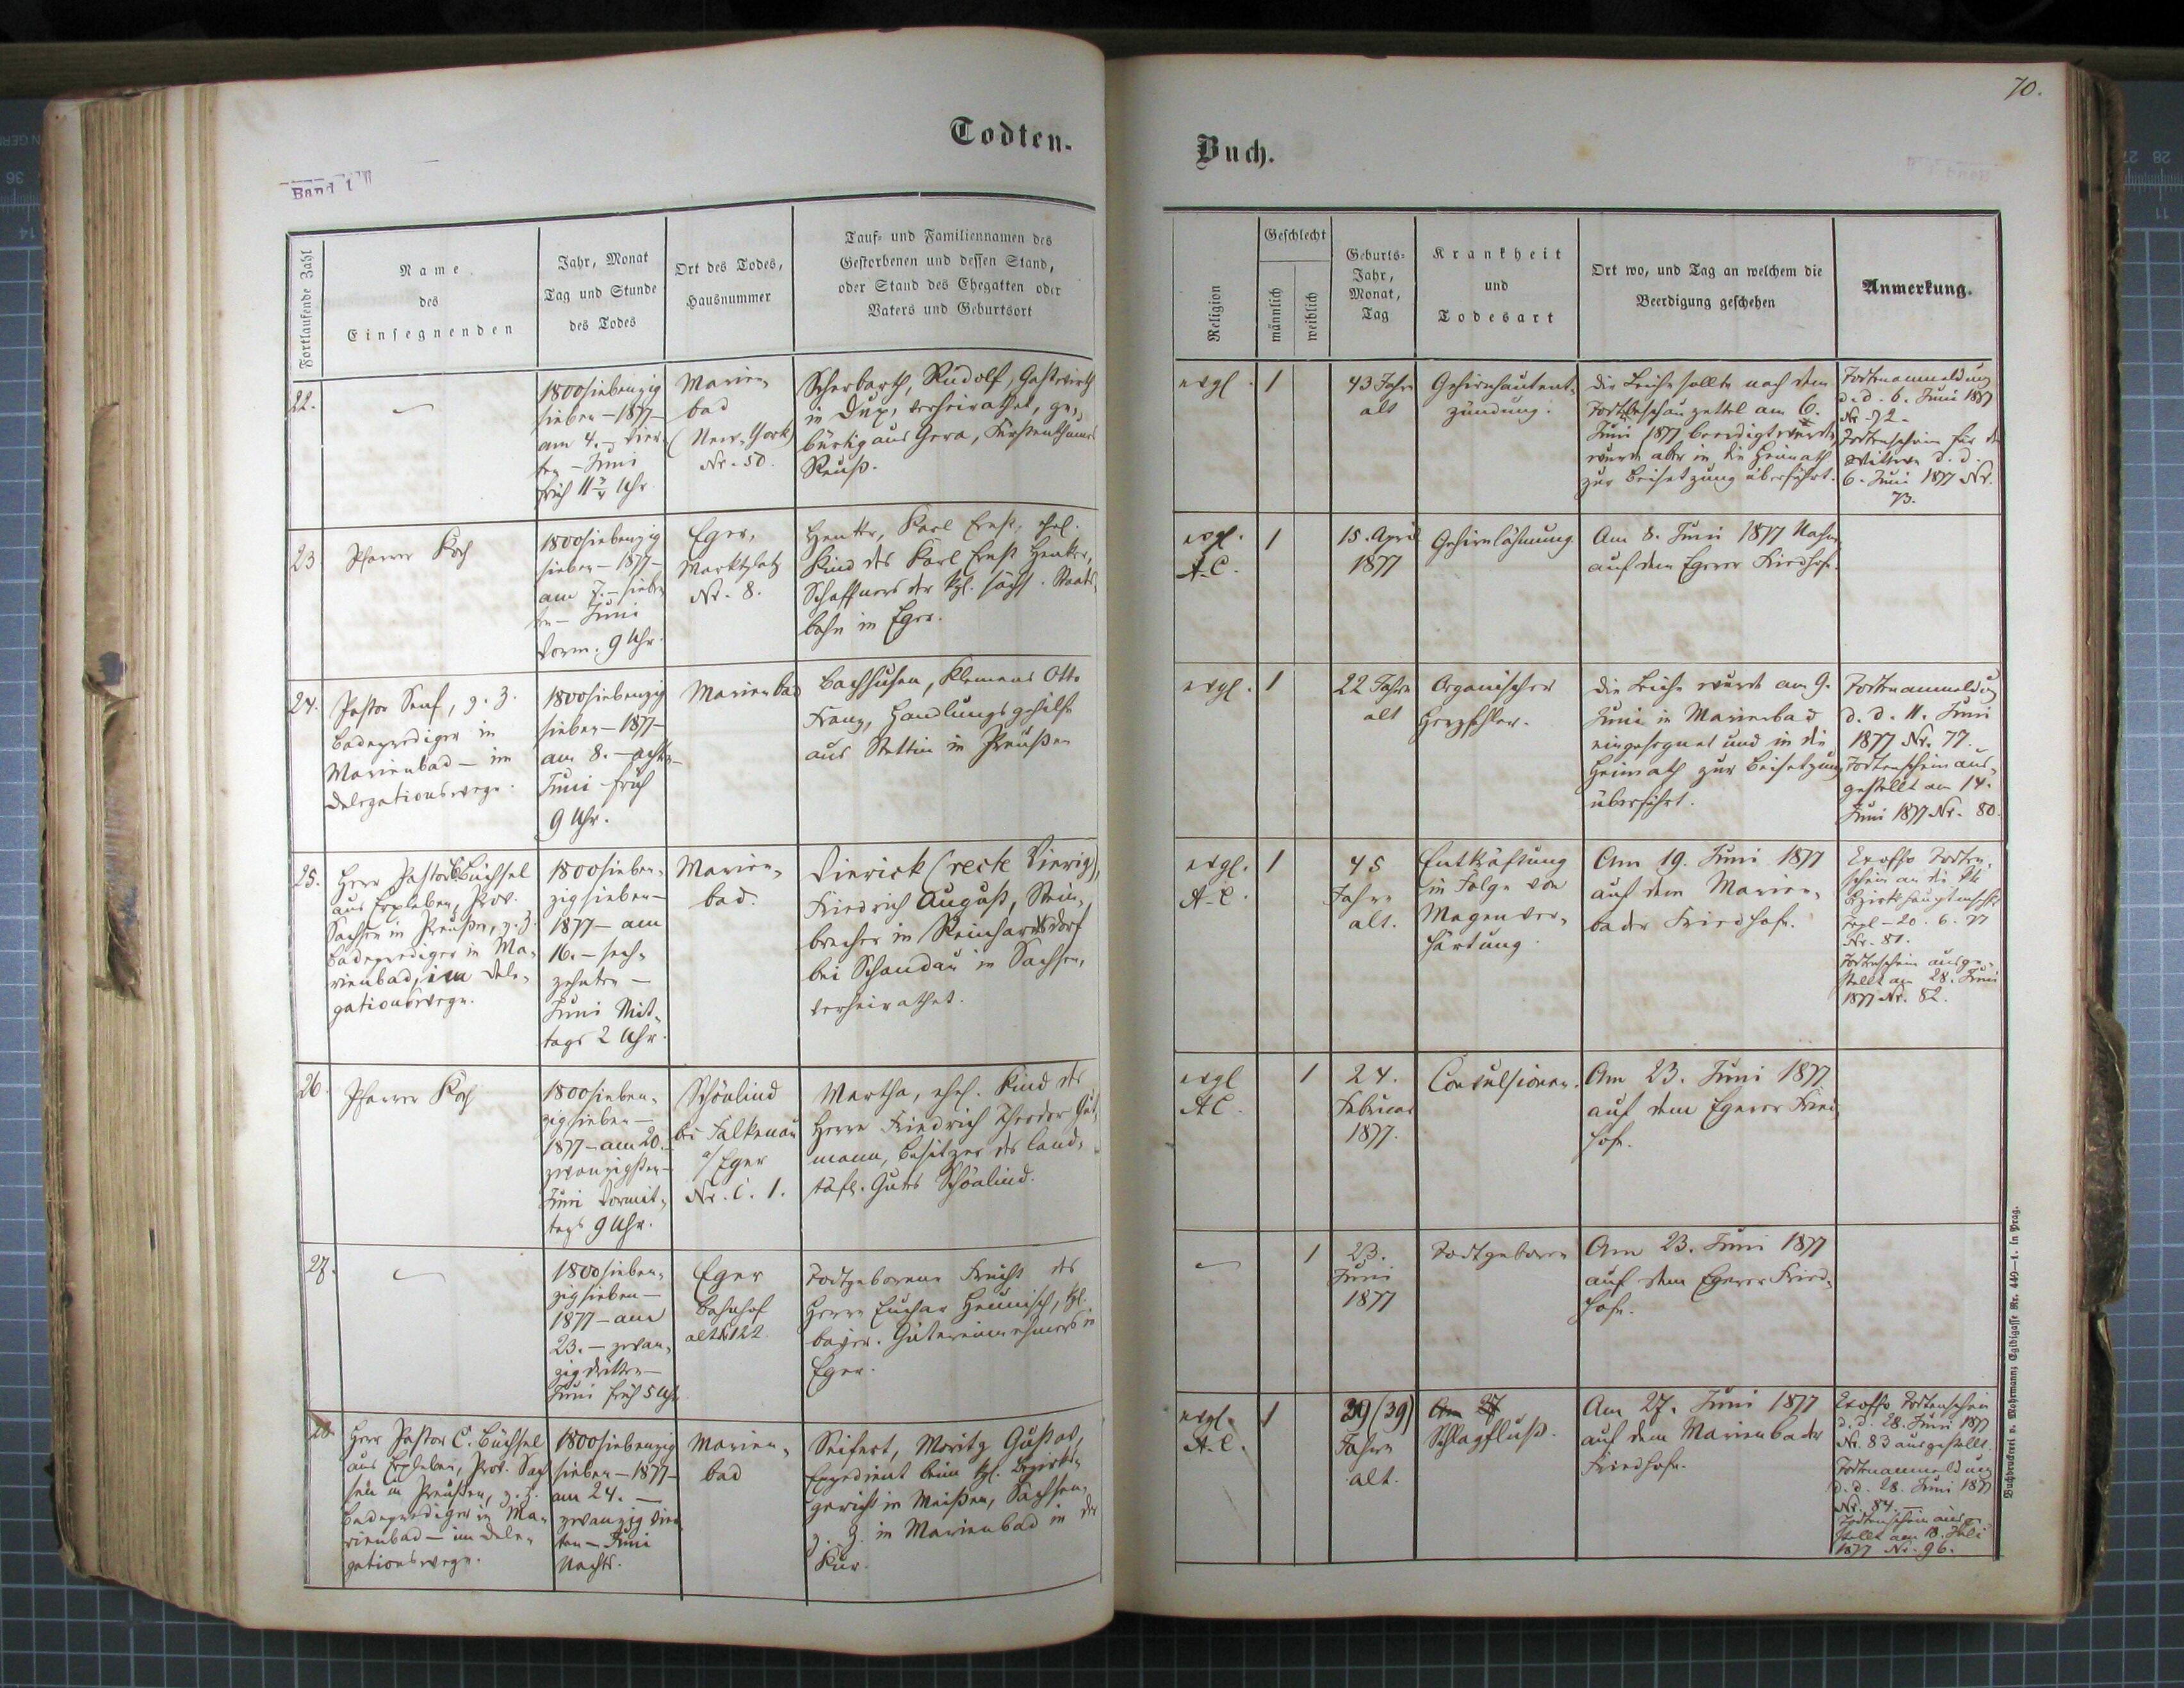 70.
Todten-
Buch.
Band I
Fortlaufende Zahl
Name
des
Einsegnenden
Jahr, Monat
Tag und Stunde
des Todes
Ort des Todes,
Hausnummer
Tauf- und Familiennamen des
Gestorbenen und dessen Stand,
oder Stand des Ehegatten oder
Vaters und Geburtsort
Religion
Geschlecht
männlich
weiblich
Geburts-
Jahr,
Monat,
Tag
Krankheit
und
Todesart
Ort wo, und Tag an welchem die
Beerdigung geschehen
Anmerkung.
22.
1800siebenzig
sieben – 1877 –
am 4. – vier-
ten – Juni
früh 11¾ Uhr
Marien-
bad
(New-York)
Nr. 50.
Scherbarth, Rudolf, Gastwirth
in Dux, verheirathet, ge-
bürtig aus Gera, Fürstenthums
Reuß.
evgl.
1
43 Jahre
alt
Gehirnhautent-
zündung.
Die Leiche sollte nach dem
Todtenbeschauzettel am 6.
Juni 1877 beerdigt werden,
wurde aber in die Heimath
zur Beisetzung überführt.
Todtenanmeldung
d. d. 6. Juni 1877
Nr. 72.
Todtenschein für die
Wittwe d. d.
6. Juni 1877 Nr.
73.
23
Pfarrer Koch
1800siebenzig
sieben – 1877 –
am 7. – sieben-
ten – Juni
Vorm. 9 Uhr.
Eger,
Marktplatz
Nr. 8.
Henker, Karl Ernst, ehel.
Kind des Karl Ernst Henker,
Schaffners der kgl. sächs. Staats-
bahn in Eger.
evgl.
A. C.
1
15. April
1877
Gehirnlähmung
Am 8. Juni 1877 Nachm.
auf dem Egerer Friedhofe.
24.
Pastor Senf, z. Z.
Badeprediger in
Marienbad – im
Delegationswege.
1800siebenzig
sieben – 1877 –
am 8. – achten –
Juni früh
9 Uhr.
Marienbad
Bachhusen, Klemens Otto
Franz, Handlungsgehilfe
aus Stettin in Preußen
evgl.
1
22 Jahre
alt
Organischer
Herzfehler.
Die Leiche wurde am 9.
Juni in Marienbad
eingesegnet und in die
Heimath zur Beisetzung
überführt.
Todtenanmeldung
d. d. 11. Juni
1877 Nr. 77.
Todtenschein aus-
gestellt am 14.
Juni 1877 Nr. 80.
25.
Herr Pastor C. Büchsel
aus Erxleben, Prov.
Sachsen in Preußen, z. Z.
Badeprediger in Ma-
rienbad, im Dele-
gationswege.
1800sieben-
zigsieben –
1877 – am
16. – sech-
zehnten –
Juni Mit-
tags 2 Uhr.
Marien-
bad.
Vierick (recte Vierig),
Friedrich August, Stein-
brecher in Reinhardtsdorf
bei Schandau in Sachsen,
verheirathet.
evgl.
A. C.
1
45
Jahre
alt.
Entkräftung
in Folge von
Magenver-
härtung
Am 19. Juni 1877
auf dem Marien-
bader Friedhofe.
Exoffo Todten-
schein an die kk
Bezirkshauptmschft
Tepl – 20. 6. 77
Nr. 81.
Todtenschein ausge-
stellt am 28. Juni
1877 Nr. 82.
26.
Pfarrer Koch
1800sieben-
zigsieben –
1877 – am 20. –
zwanzigsten –
Juni Vormit-
tags 9 Uhr.
Schönlind
bei Falkenau
a/Eger
Nr. C. 1.
Martha, ehel. Kind des
Herrn Friedrich Theodor Gut-
mann, Besitzer des land-
täfl. Gutes Schönlind.
evgl
A. C.
1
24.
Februar
1877.
Convulsionen.
Am 23. Juni 1877
auf dem Egerer Fried-
hofe.
27.
1800sieben-
zigsieben –
1877 – am
23. – zwan-
zigdritten –
Juni früh 5 Uhr
Eger
Bahnhof
alt N. 122.
Todtgeborene Frucht des
Herrn Euchar Heunisch, kgl.
bayer. Gütereinnehmers in
Eger.
1
23.
Juni
1877
Todtgeboren
Am 23. Juni 1877
auf dem Egerer Fried-
hofe.
28.
Herr Pastor C. Büchsel
aus Erxleben, Prov. Sach
sen in Preußen, z. Z.
Badeprediger in Ma-
rienbad – im Dele-
gationswege.
1800siebenzig
sieben – 1877 –
am 24. –
zwanzig vier-
ten – Juni
Nachts.
Marien-
bad
Seifert, Moritz Gustav,
Expedient beim kgl. Bezirks-
gericht in Meißen, Sachsen,
z. Z. in Marienbad in der
Kur.
evgl.
A. C.
1
39 (39)
Jahre
alt.
Am 27
Schlagfluß.
Am 27. Juni 1877
auf dem Marienbader
Friedhofe.
Exoffo Todtenschein
d. d. 28. Juni 1877
Nr. 83 ausgestellt.
Todtenanmeldung
d. d. 28. Juni 1877
Nr. 84. –
Todtenschein ausge-
stellt am 18. Juli
1877 Nr. 96.
Buchdruckerei v. Mohrmann; Egidigasse Nr. 449—1. in Prag.